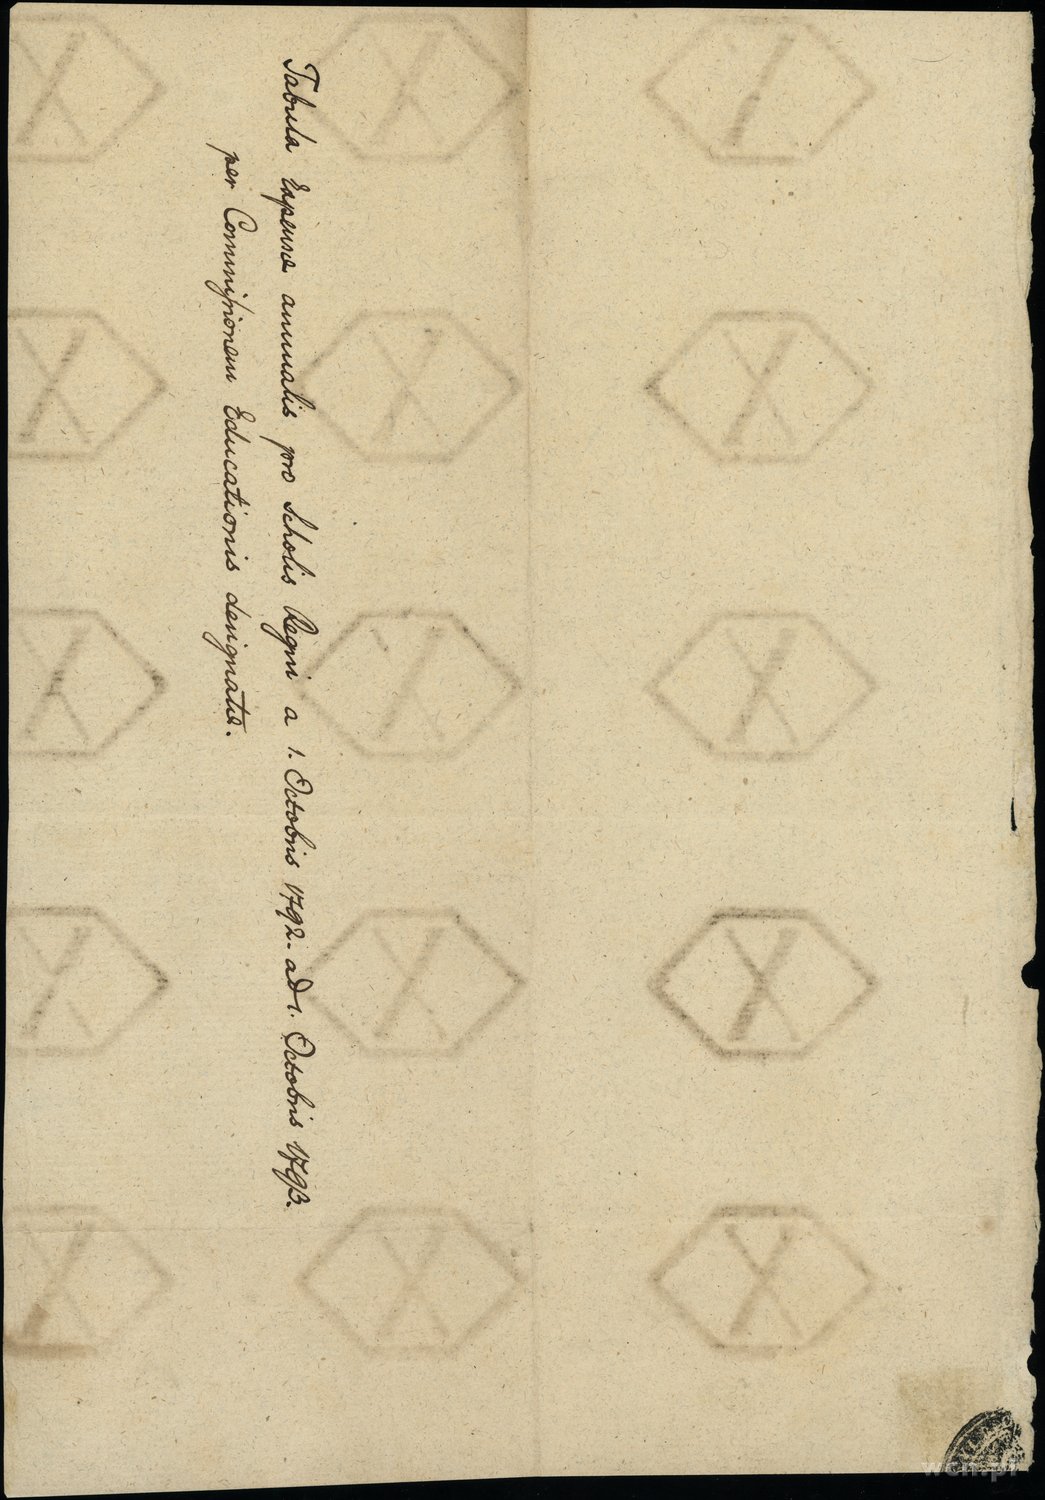 Tabula Expensæ annualis pro Scholis Regni a 1. Octobris 1792. ad 1. Octobris 1793.
per Commissionem Educationis designatæ.
wcn.pl